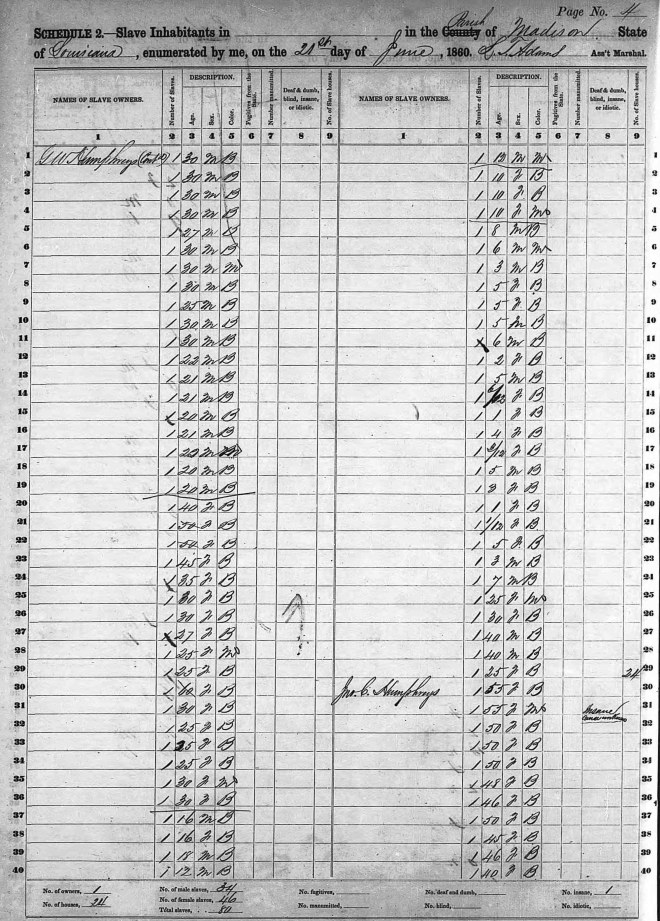 Page No. 4
SCHEDULE 2.—Slave Inhabitants in in the County Parish of Madison State
of Louisiana, enumerated by me, on the 21st day of June, 1860. Adams Ass't Marshal.
NAMES OF SLAVE OWNERS. Number of Slaves. DESCRIPTION. Age. Sex. Color. Fugitives from the State. Number manumitted. Deaf & dumb, blind, insane, or idiotic. No. of Slave houses. NAMES OF SLAVE OWNERS. Number of Slaves. DESCRIPTION. Age. Sex. Color. Fugitives from the State. Number manumitted. Deaf & dumb, blind, insane, or idiotic. No. of Slave houses.
1 2 3 4 5 6 7 8 9 1 2 3 4 5 6 7 8 9
1 G W Humphreys 1 30 M B 1 M M 1
2 1 30 M B 1 10 F B 2
3 1 30 M B 1 10 F B 3
4 1 30 M B 1 10 F M 4
5 1 27 M B 1 8 M B 5
6 1 30 M B 1 6 M M 6
7 1 30 M M 1 3 M B 7
8 1 30 M B 1 5 F B 8
9 1 25 M B 1 5 F B 9
10 1 30 M B 1 5 M B 10
11 1 30 M B 6 M B 11
12 1 22 M B 1 2 F B 12
13 1 21 M B 1 5 M B 13
14 1 21 M B 1 F B 14
15 1 20 M B 1 1 F B 15
16 1 21 M B 1 4 F B 16
17 1 M 1 F B 17
18 1 20 M B 1 5 M B 18
19 1 20 M B 1 3 F B 19
20 1 40 F B 1 1 F B 20
21 1 50 F B 1 F B 21
22 1 50 F B 1 5 F B 22
23 1 45 F B 1 3 M B 23
24 1 35 F B 1 7 M B 24
25 1 30 F B 1 25 F M 25
26 1 30 F B 1 30 F B 26
27 27 F B 1 40 M B 27
28 1 25 F M 1 40 M B 28
29 1 25 F B 1 25 F B 24 29
30 1 F B Jno. C. Humphreys 1 55 F B 30
31 1 30 F B 1 55 F M Insane 31
32 1 25 F B 1 50 F B 32
33 1 25 F B 1 50 F B 33
34 1 25 F B 1 50 F B 34
35 1 30 F M 1 48 F B 35
36 1 30 F B 1 46 F B 36
37 1 16 M B 1 50 F B 37
38 1 16 F B 1 45 F B 38
39 1 18 M B 1 46 F B 39
40 1 12 M B 1 40 F B 40
No. of owners, 1 No. of male slaves, 34 No. fugitives, No. deaf and dumb, No. insane, 1
No. of houses, 24 No. of female slaves, 46 No. manumitted, No. blind, No. idiotic,
Total slaves, 80